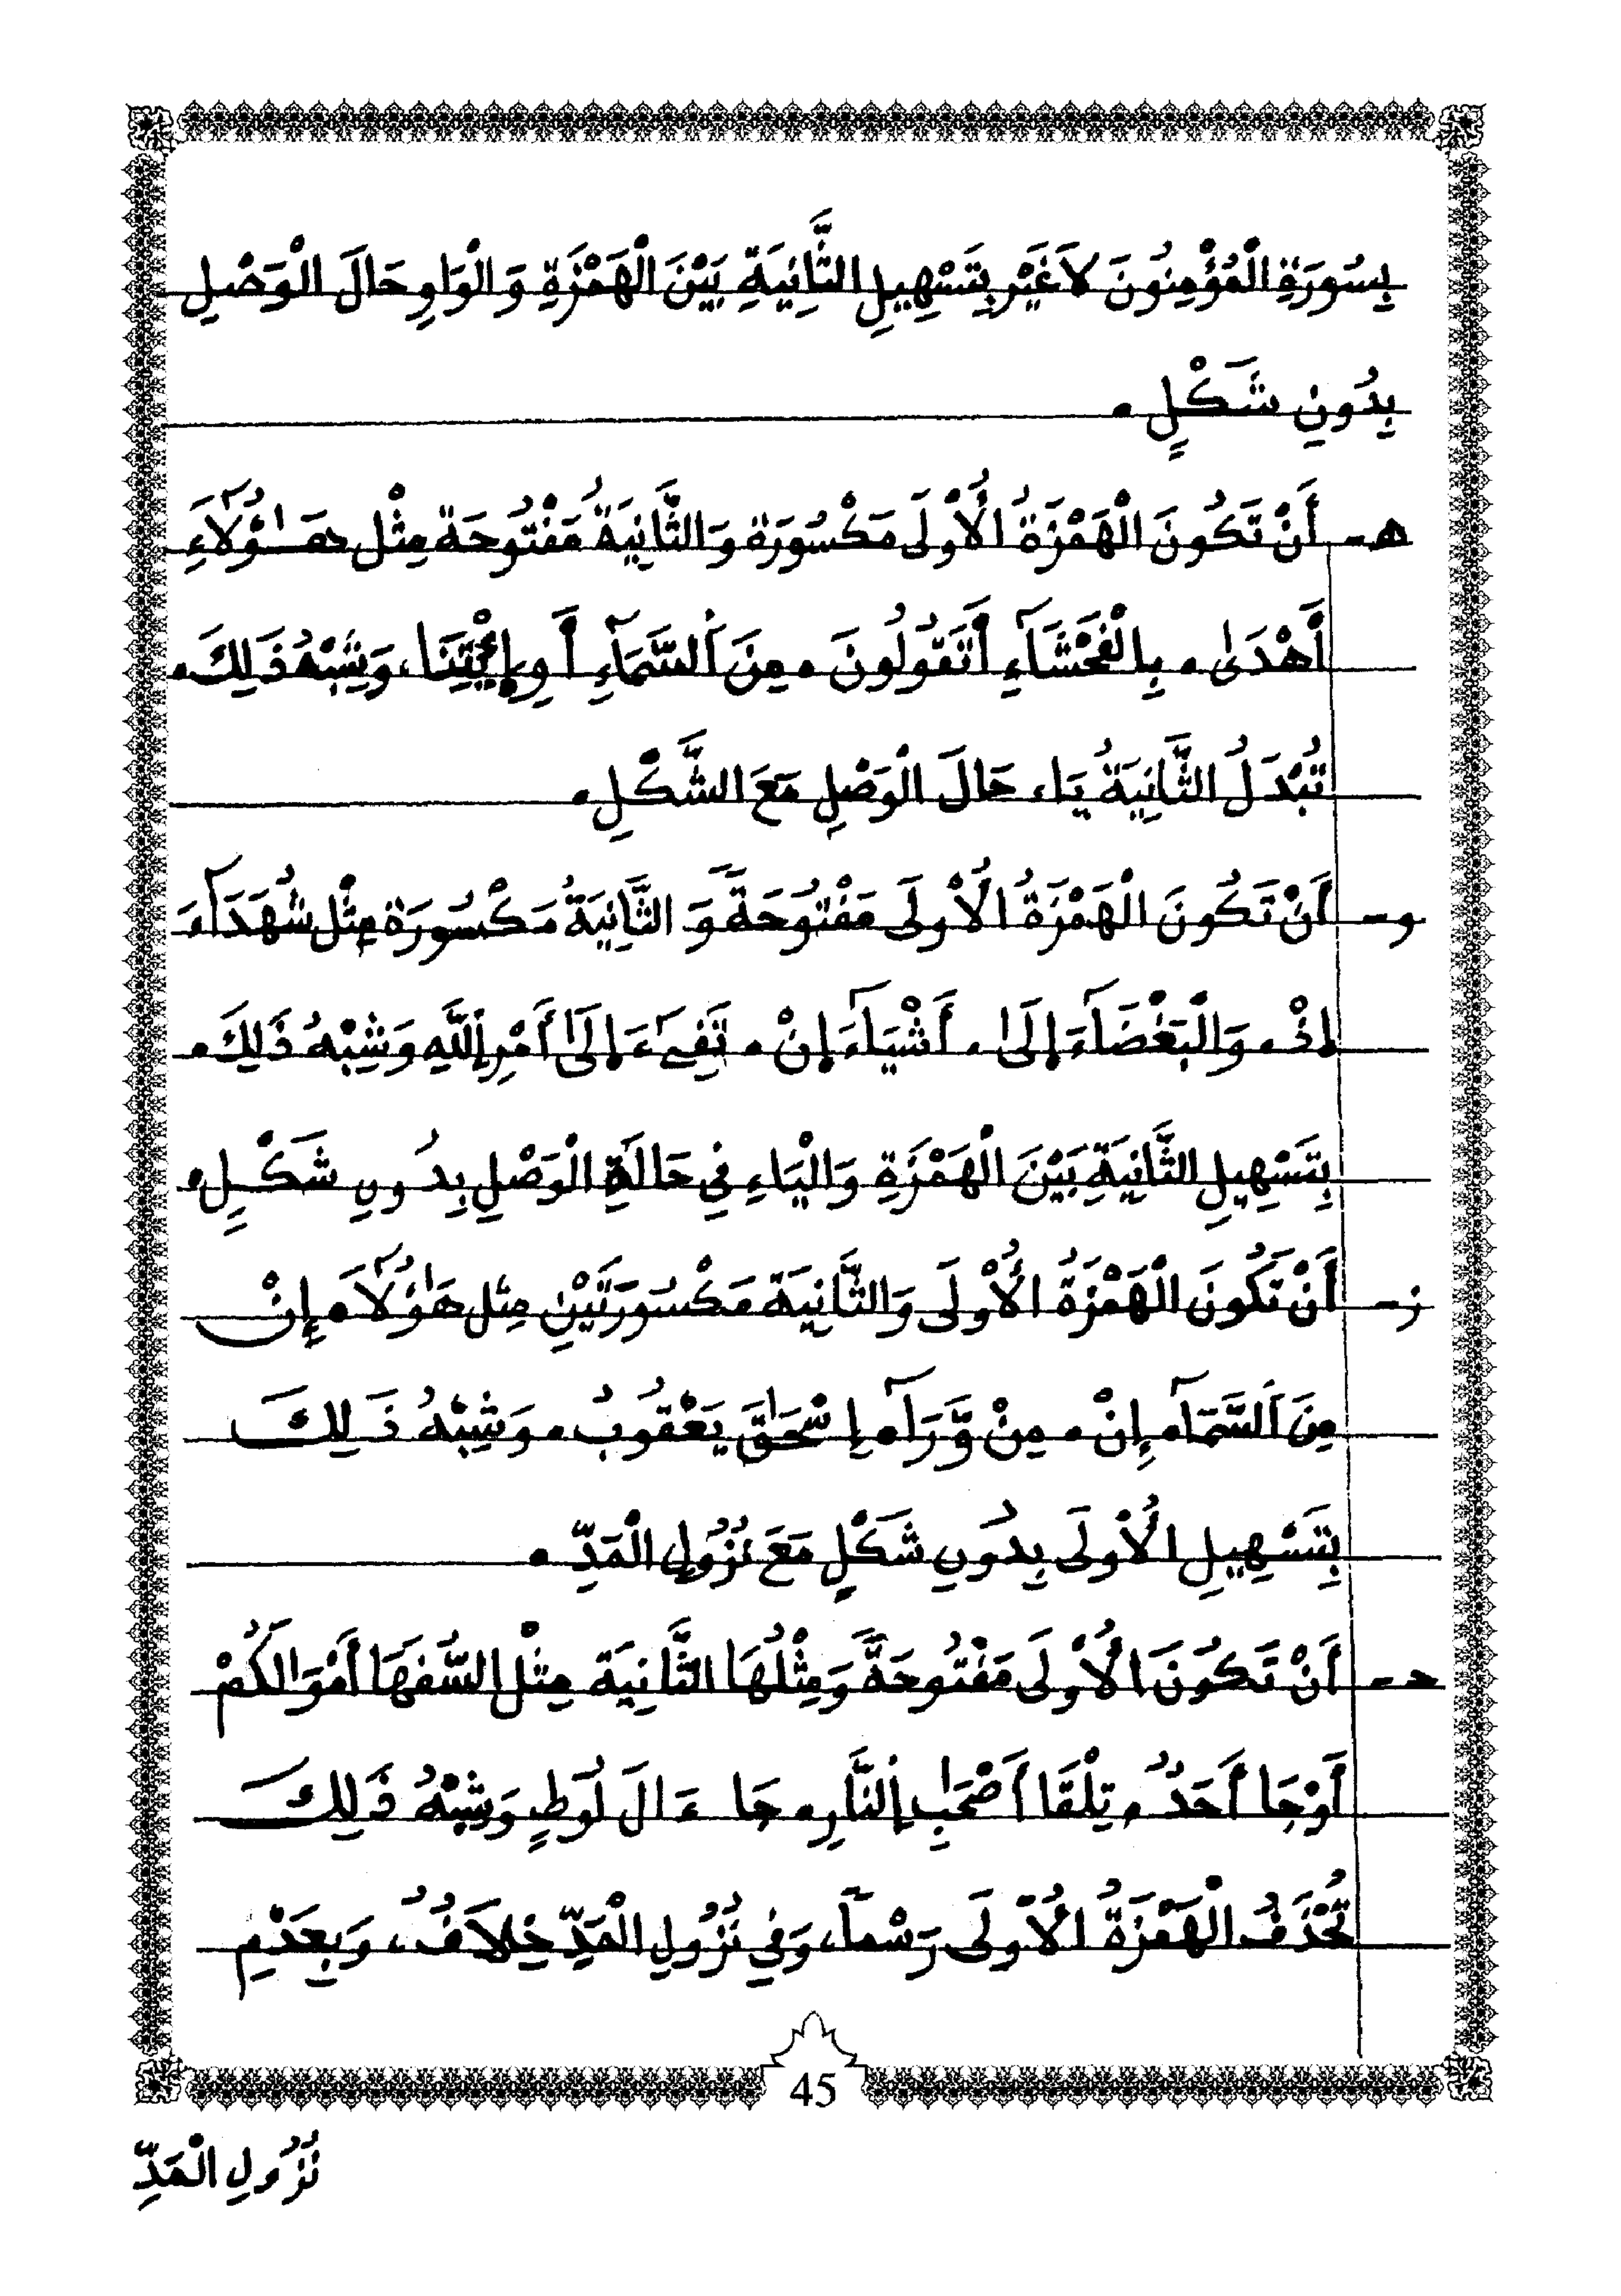 بِسُورَةِ الْمُؤْمِنُونَ لَا غَيْر بِتَسْهِيلِ الثَّانِيَةِ بَيْنَ الْهَمْزَةِ وَالْوَاوِ حَالَ الْوَصْلِ
بِدُونِ شَكْلٍ .
هـ - أَنْ تَكُونَ الْهَمْزَةُ الْأُوْلَى مَكْسُورَة وَالثَّانِيَةُ مَفْتُوحَة مِثْل هَٰٓؤُلَآءِ
أَهْدَىٰ . بِالْفَحْشَآءِ أَتَقُولُونَ . مِنَ اَ۬لسَّمَآءِ أَوِ اِئْتِنَا ، وَشِبْهُ ذَلِكَ .
تُبْدَلُ الثَّانِيَةُ يَاء حَالَ الْوَصْلِ مَعَ الشَّكْلِ .
و - أَنْ تَكُونَ الْهَمْزَةُ الْأُوْلَى مَفْتُوحَةً وَ الثَّانِيَةُ مَكْسُورَة مِثْل شُهَدَآءَ
إِذْ . وَالْبَغْضَآءَ إِلَىٰ . أَشْيَآءَ إِنْ . تَفِےٓءَ إِلَىٰٓ أَمْرِ اِ۬للَّهِ وَشِبْهُ ذَلِكَ .
بِتَسْهِيلِ الثَّانِيَةِ بَيْنَ الْهَمْزَةِ وَالْيَاءِ فِي حَالَةِ الْوَصْلِ بِدُونِ شَكْلٍ .
ز - أَنْ تَكُونَ الْهَمْزَةُ الْأُوْلَى وَالثَّانِيَة مَكْسُورَتَيْنِ مِثل هَٰٓؤُلَآ. إِنْ
مِنَ اَ۬لسَّمَآ. إِنْ . مِنْ وَّرَآ. إِسْحَٰقَ يَعْقُوبُ . وَشِبْهُ ذَلِكَ
بِتَسْهِيلِ الْأُوْلَى بِدُونِ شَكْلٍ مَعَ نُزُولِ الْمَدِّ .
حـ - أَنْ تَكُونَ الْأُوْلَى مَفْتُوحَةً وَمِثْلُهَا الثَّانِيَة مِثْل السُّفَهَا أَمْوَٰلَكُمْ
أَوْ جَا أَحَدٌ . تِلْقَا أَصْحَٰبِ اِ۬لنَّارِ . جَا ءَالَ لُوطٍ وَشِبْهُ ذَلِكَ
تُحْذَفُ الْهَمْزَةُ الْأُوْلَى رَسْماً ، وَفِي نُزُولِ الْمَدِّ خِلَافٌ ، وَبِعَدْمِ
45
نُزُولِ الْمَدِّ